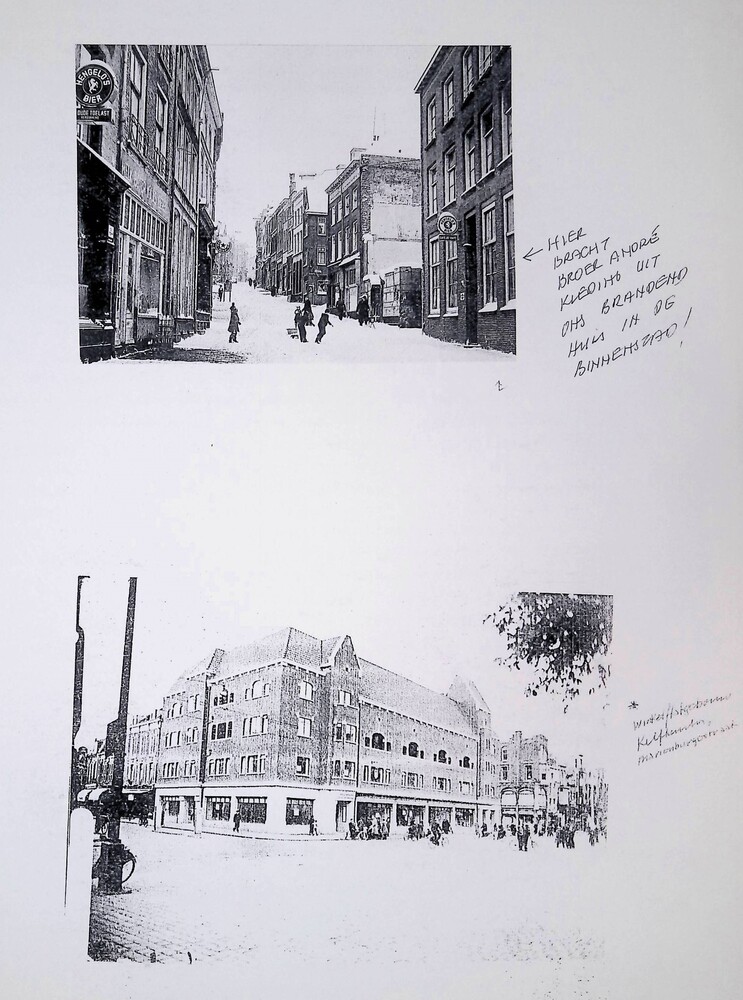 HENGELO'S
BIER
OUDE TOELAST
← HIER
BRACHT
BROER ANDRÉ
KLEDING UIT
ONS BRANDEND
HUIS IN DE
BINNENSTAD!
*